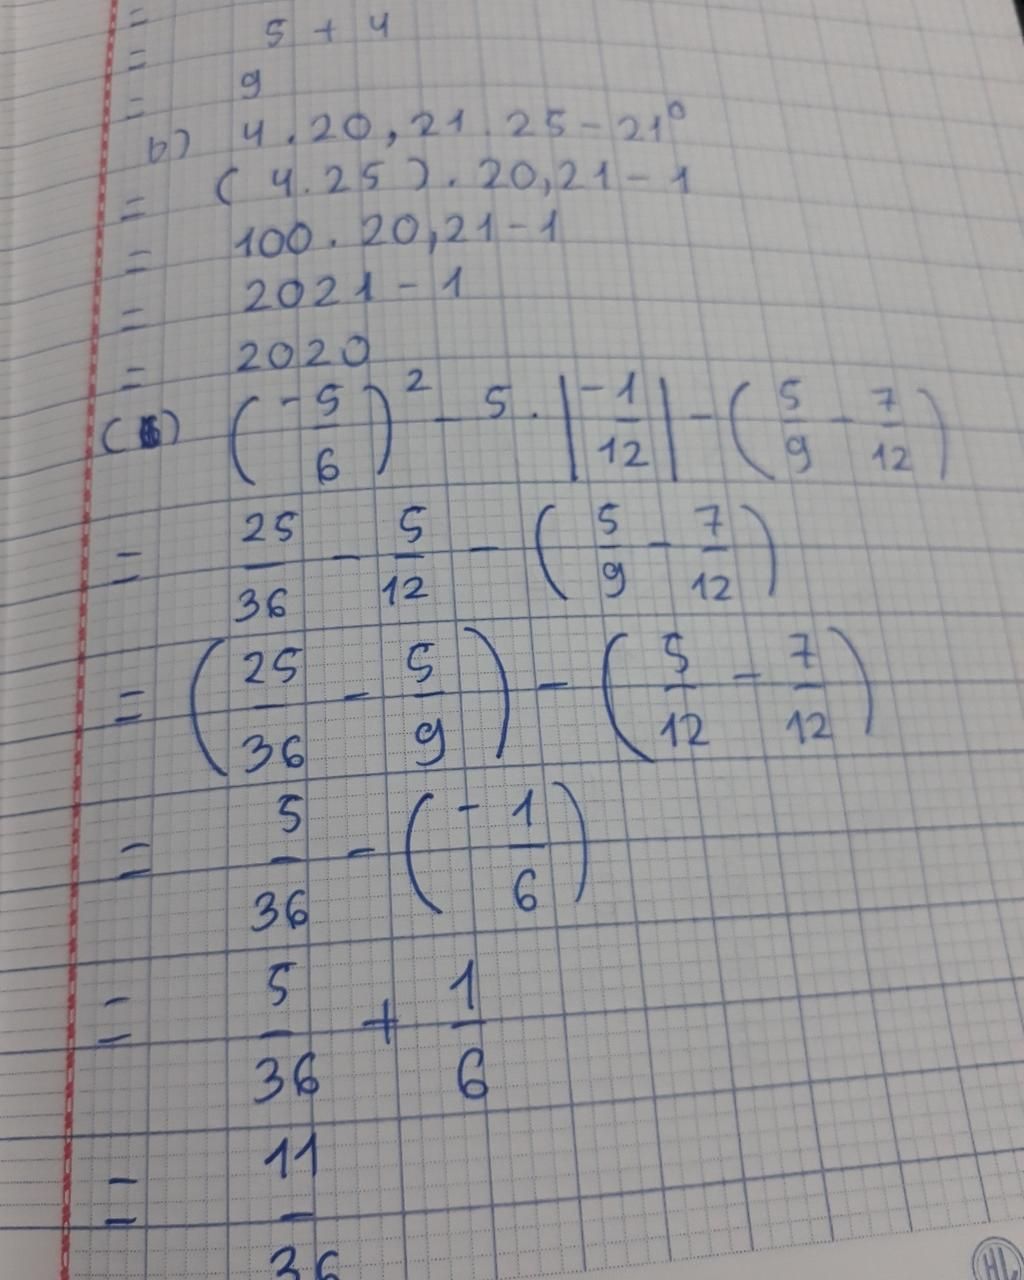 = 5 + 4
= 9
b) 4 . 20,21 . 25 - 21⁰
= (4.25) . 20,21 - 1
= 100 . 20,21 - 1
= 2021 - 1
= 2020
(-5/6)² - 5 . |-1/12| - (5/9 - 7/12)
= 25/36 - 5/12 - (5/9 - 7/12)
= (25/36 - 5/9) - (5/12 - 7/12)
= 5/36 - (-1/6)
= 5/36 + 1/6
= 11/36
HL